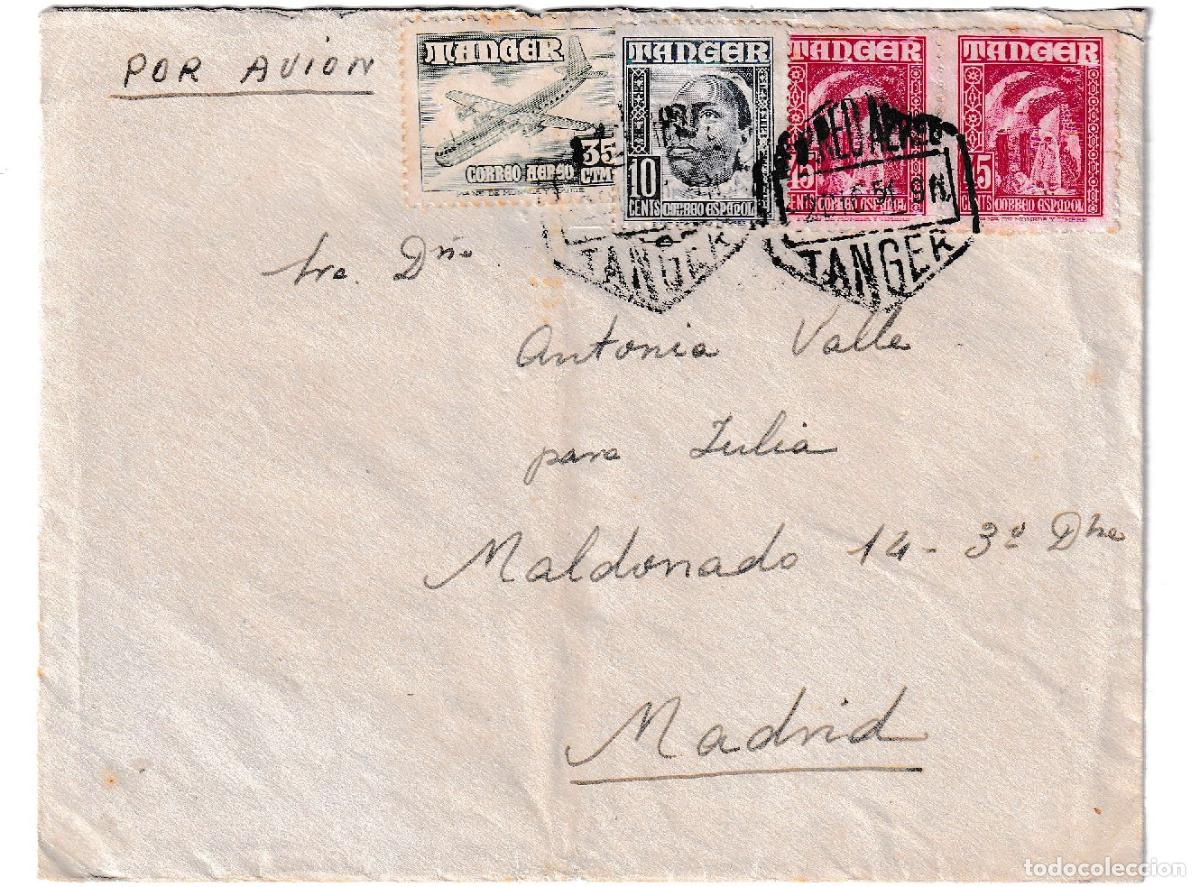 POR AVION
TANGER
CORREO AEREO
35
CTMS
TANGER
10
CENTS CORREO ESPAÑOL
TANGER
45
CENTS CORREO ESPAÑOL
TANGER
45
CENTS CORREO ESPAÑOL
CORREO AEREO
TANGER
TANGER
Sra Dña
Antonia Valle
para Julia
Maldonado 14 - 3º Dha
Madrid
todocoleccion